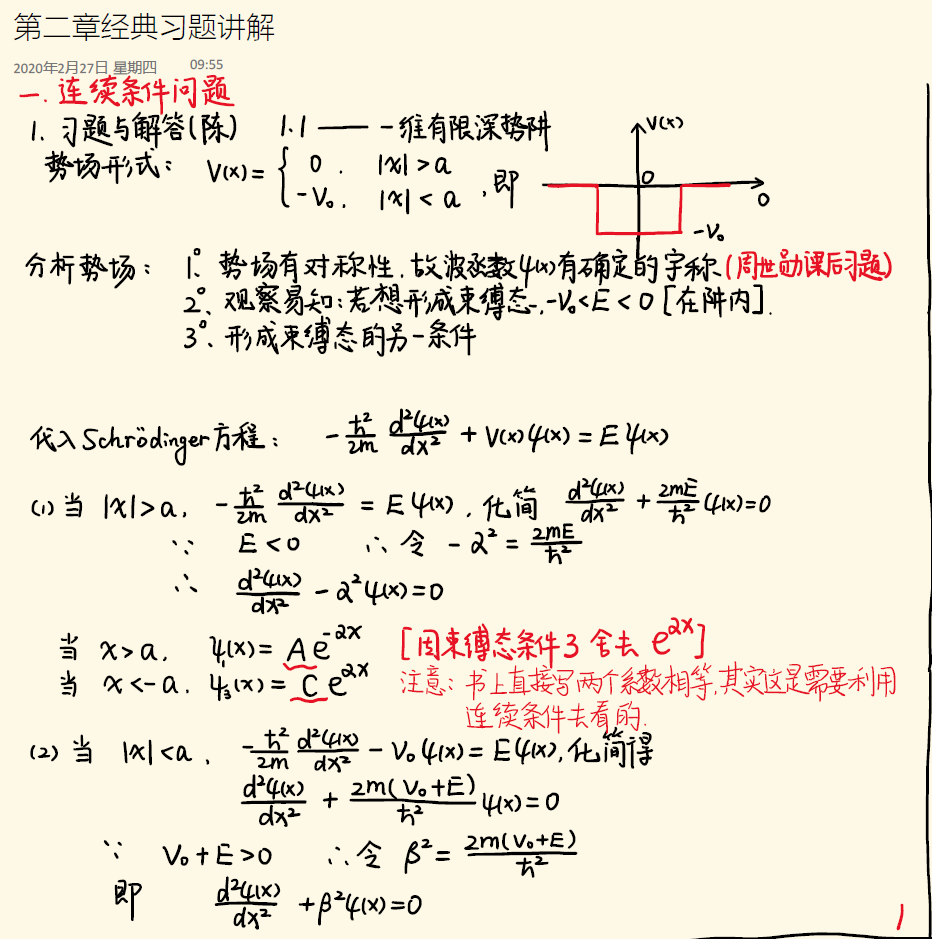 第二章经典习题讲解
2020年2月27日 星期四 09:55
一. 连续条件问题
1. 习题与解答(陈) 1.1 —— 一维有限深势阱
势场形式: V(x) = { 0, |x| > a
-V₀, |x| < a , 即
V(x)
0
0
-V₀
分析势场: 1°、势场有对称性, 故波函数ψ(x)有确定的宇称 (周世勋课后习题)
2°、观察易知: 若想形成束缚态, -V₀ < E < 0 [在阱内].
3°、形成束缚态的另一条件
代入Schrödinger方程: -ℏ²/2m d²ψ(x)/dx² + V(x)ψ(x) = Eψ(x)
(1) 当 |x| > a, -ℏ²/2m d²ψ(x)/dx² = Eψ(x), 化简 d²ψ(x)/dx² + 2mE/ℏ² ψ(x) = 0
∵ E < 0 ∴ 令 -α² = 2mE/ℏ²
∴ d²ψ(x)/dx² - α²ψ(x) = 0
当 x > a, ψ₁(x) = Ae^{-αx} [因束缚态条件3 舍去 e^{αx}]
当 x < -a, ψ₃(x) = Ce^{αx} 注意: 书上直接写两个系数相等, 其实这是需要利用
连续条件去看的.
(2) 当 |x| < a, -ℏ²/2m d²ψ(x)/dx² - V₀ψ(x) = Eψ(x), 化简得
d²ψ(x)/dx² + 2m(V₀+E)/ℏ² ψ(x) = 0
∵ V₀+E > 0 ∴ 令 β² = 2m(V₀+E)/ℏ²
即 d²ψ(x)/dx² + β²ψ(x) = 0
1